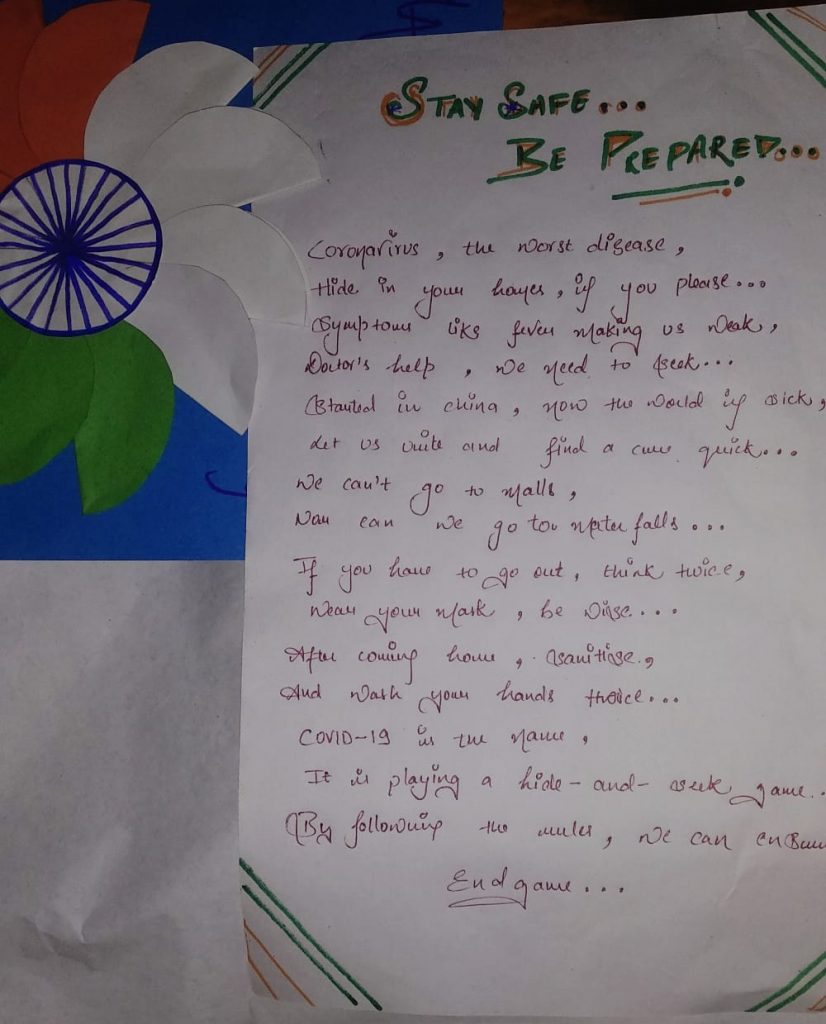 STAY SAFE...
BE PREPARED...
Coronavirus, the worst disease,
Hide in your homes, if you please...
Symptoms like fever making us weak,
Doctor's help, we need to seek...
Started in china, now the world is sick,
Let us unite and find a cure quick...
We can't go to malls,
Nor can we go to water falls...
If you have to go out, think twice,
Wear your mask, be wise...
After coming home, sanitise,
And wash your hands thrice...
COVID-19 is the name,
It is playing a hide-and-seek game..
By following the rules, we can
End game...